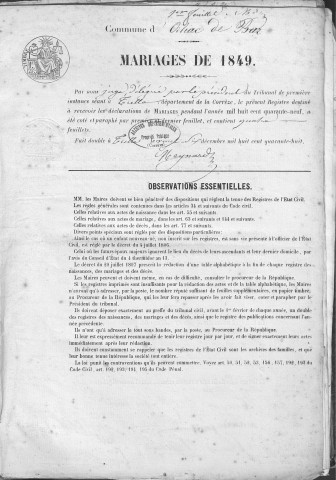 1er feuillet
Commune d
MARIAGES DE 1849.
Par nous juge délégué par le président du Tribunal de première
instance séant à Tulle département de la Corrèze, le présent Registre destiné
à recevoir les déclarations de MARIAGES pendant l'année mil huit cent quarante-neuf, a
été coté et paraphé par premier et dernier feuillet, et contient quatre
feuillets.
Fait double à Tulle décembre mil huit cent quarante-huit.
OBSERVATIONS ESSENTIELLES.
MM. les Maires doivent se bien pénétrer des dispositions qui règlent la tenue des Registres de l'État Civil.
Les règles générales sont contenues dans les articles 34 et suivants du Code civil.
Celles relatives aux actes de naissance dans les art. 55 et suivants
Celles relatives aux actes de mariage, dans les art. 63 et suivants et 164 et suivants.
Celles relatives aux actes de décès, dans les art. 77 et suivants.
Divers points spéciaux sont réglés par des dispositions particulières:
Ainsi le cas où un enfant nouveau-né, non inscrit sur les registres, est présenté sans vie à l'officier de l'État
Civil, est réglé par le décret du 4 juillet 1806.
Celui où les futurs époux majeurs ignorent le lieu du décès de leurs ascendants et leur dernier domicile, par
l'avis du Conseil d'État du 4 thermidor an 13.
Le décret du 20 juillet 1807 prescrit la rédaction d'une table alphabétique à la fin de chaque registre des
naissances, des mariages et des décès.
Les Maires peuvent et doivent même, en cas de difficulté, consulter le procureur de la République.
Si les registres imprimés sont insuffisants pour la rédaction des actes et de la table alphabétique, les Maires
n'auront qu'à adresser, par la poste, le nombre réputé suffisant de feuilles supplémentaires, en papier timbré,
au Procureur de la République, qui les leur fera repasser après les avoir fait viser, coter et parapher par le
Président du tribunal.
Ils doivent déposer exactement au greffe du tribunal civil, avant le 1er février de chaque année, un double
des registres des naissances, des mariages et des décès, ainsi que le registre des publications concernant l'an-
née précédente.
Ils n'ont qu'à adresser le tout sous bandes, par la poste, au Procureur de la République.
Il leur est expressément recommandé de tenir leur registre jour par jour, et de signer exactement leurs actes
immédiatement après leur rédaction.
Ils doivent constamment se rappeler que les registres de l'État Civil sont les archives des familles, et que
leur bonne tenue intéresse la société tout entière.
La loi punit les contraventions qu'ils peuvent commettre. Voyez art. 50, 51, 52, 53, 156, 157, 192, 193 du
Code Civil, art. 192, 193, 194, 195 du Code Pénal.